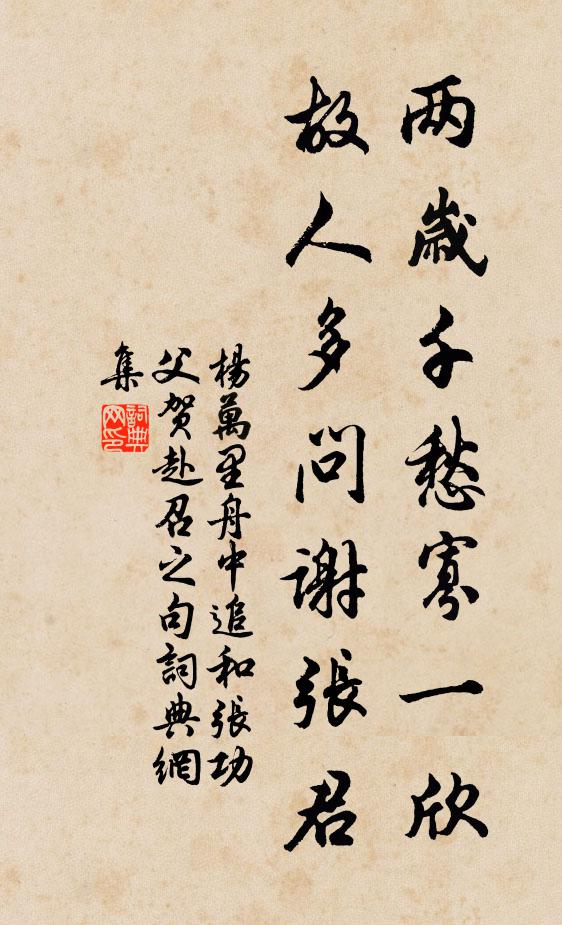 两岁千愁寡一欣
故人多问謝張君
楊萬里舟中追和張功
父贺赴召之句詞典網
集
詞典网印